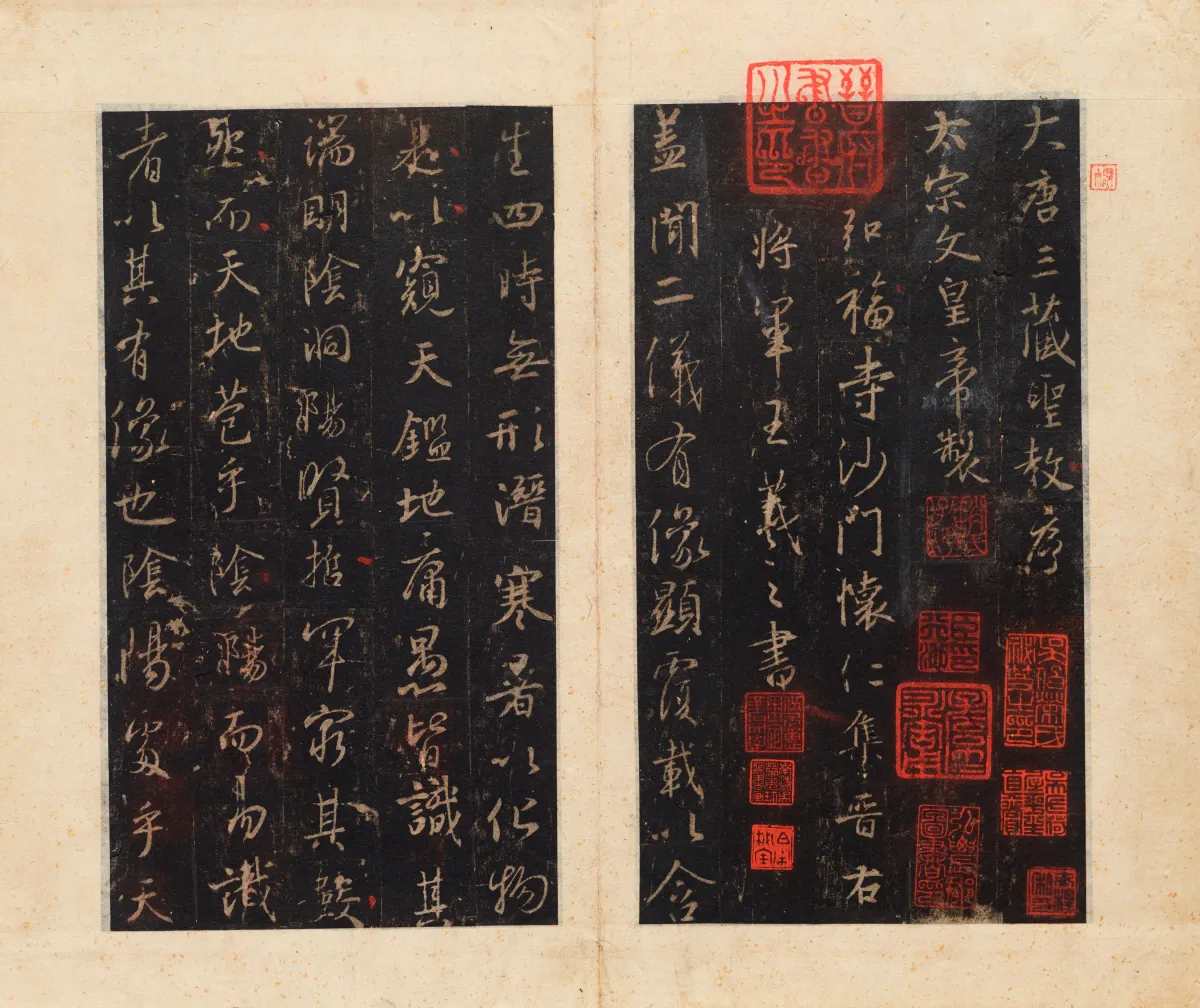 晉府書畫之印
大唐三藏聖教序
太宗文皇帝製
弘福寺沙門懷仁集晉右
將軍王羲之書
蓋聞二儀有像顯覆載以含
生四時無形潛寒暑以化物
是以窺天鑑地庸愚皆識其
端明陰洞陽賢哲罕窮其數
然而天地苞乎陰陽而易識
者以其有像也陰陽處乎天